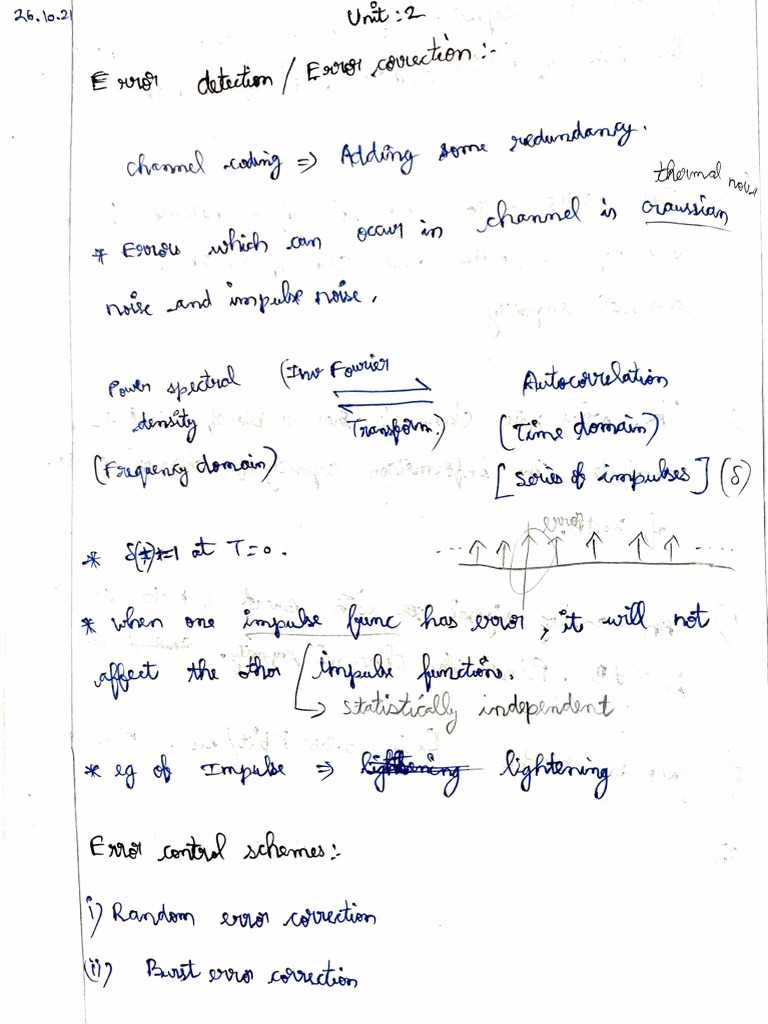 26.10.21
Unit : 2
Error detection / Error correction :-
channel coding => Adding some redundancy.
thermal noise
* Errors which can occur in channel is Graussian
noise and impulse noise.
Power spectral (Inv Fourier Autocorrelation
density Transform.) (Time domain)
(Frequency domain) [series of impulses] (δ)
error
* δ(t)=1 at T=0.
* when one impulse func has error, it will not
affect the other impulse functions.
↳ statistically independent
* eg of Impulse => lightening
Error control schemes :-
i) Random error correction
(ii) Burst error correction